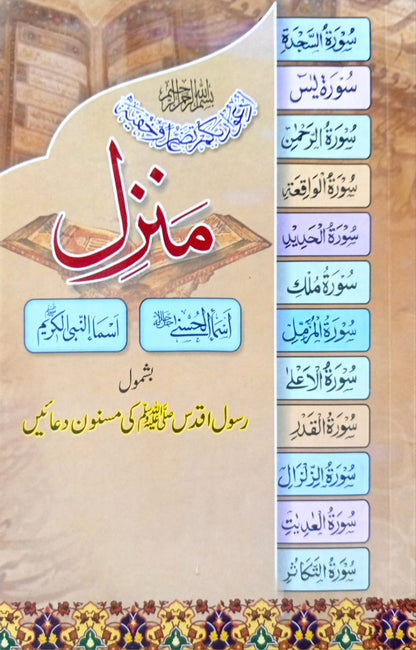 بسم الله الرحمن الرحيم
ادعوا ربكم تضرعا وخفية
منزل
اسماء الحسنیٰ جل جلالہ
اسماء النبی الکریم ﷺ
بشمول
رسول اقدس ﷺ کی مسنون دعائیں
سورة السجدة
سورة يس
سورة الرحمن
سورة الواقعة
سورة الحديد
سورة ملك
سورة المزمل
سورة الاعلى
سورة القدر
سورة الزلزال
سورة العديت
سورة التكاثر